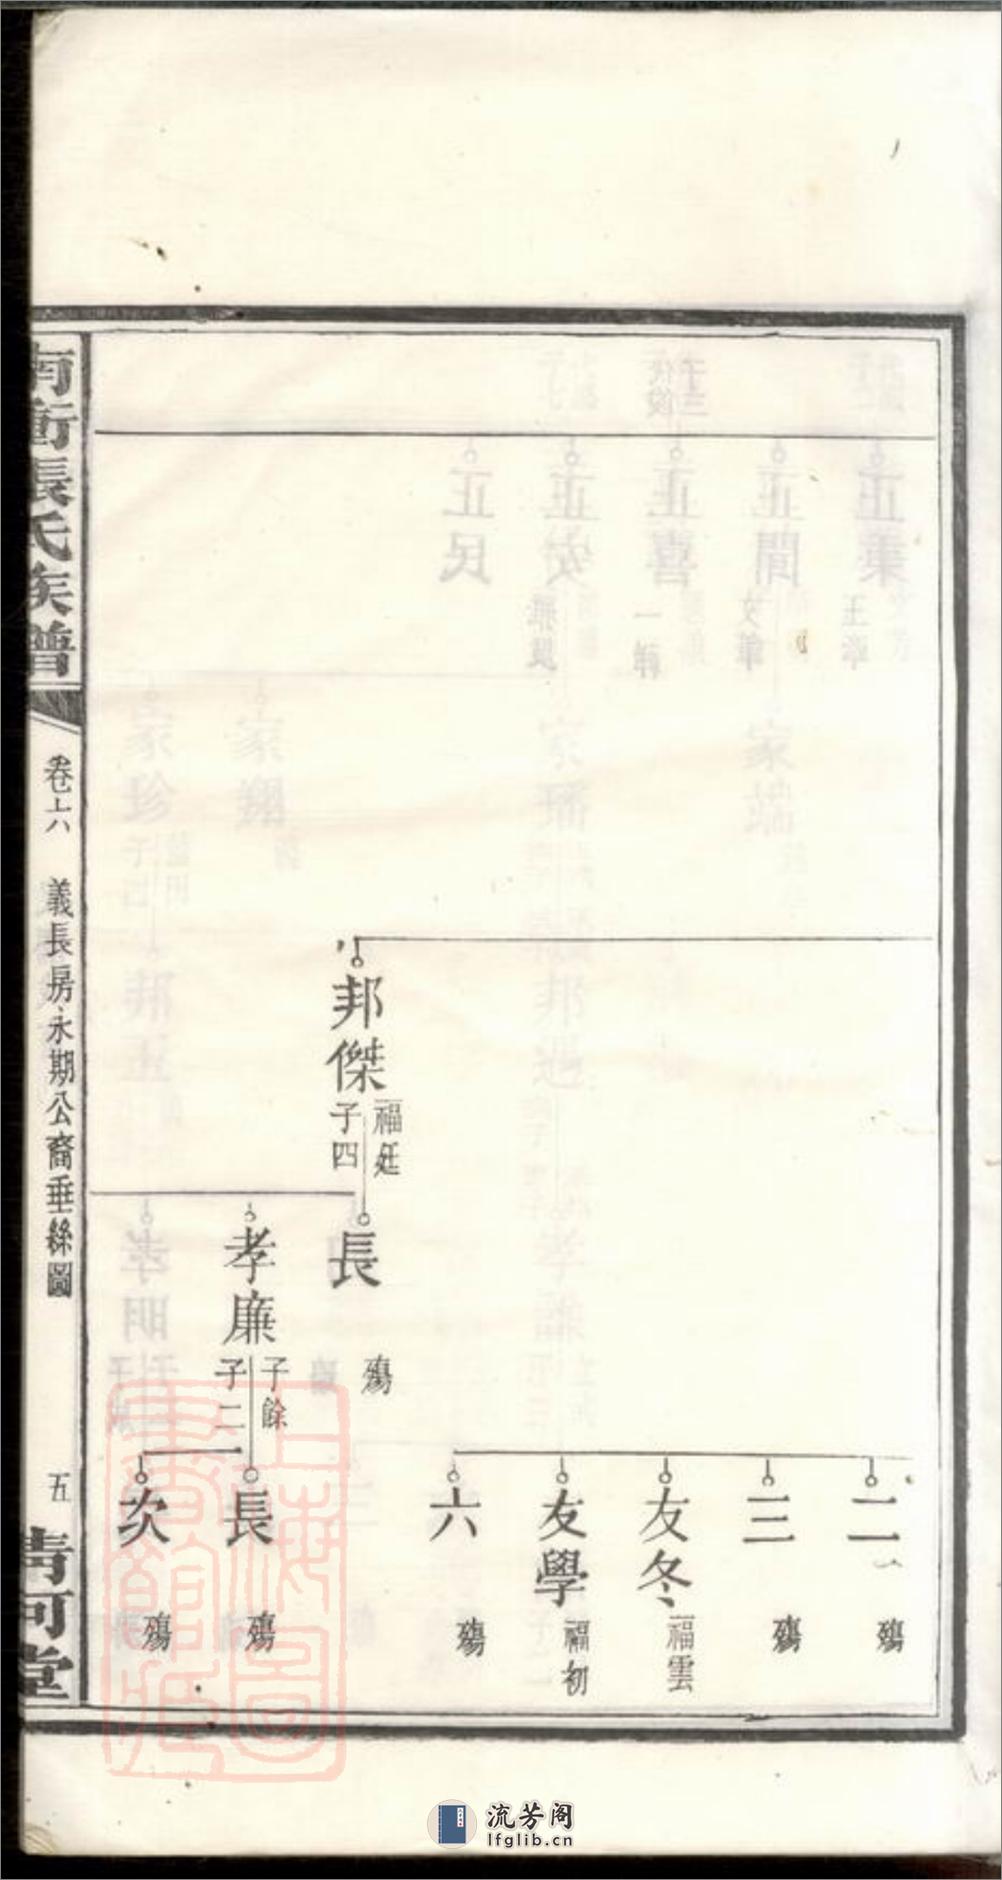 邦傑
福廷
子四
長
殤
孝廉
子餘
子二
二
殤
三
殤
友冬
福雲
友學
福初
六
殤
長
殤
次
殤
南衡張氏族譜
卷六上
義長房永期公裔垂絲圖
五
清河堂
上海圖書館藏
流芳阁
lfglib.cn